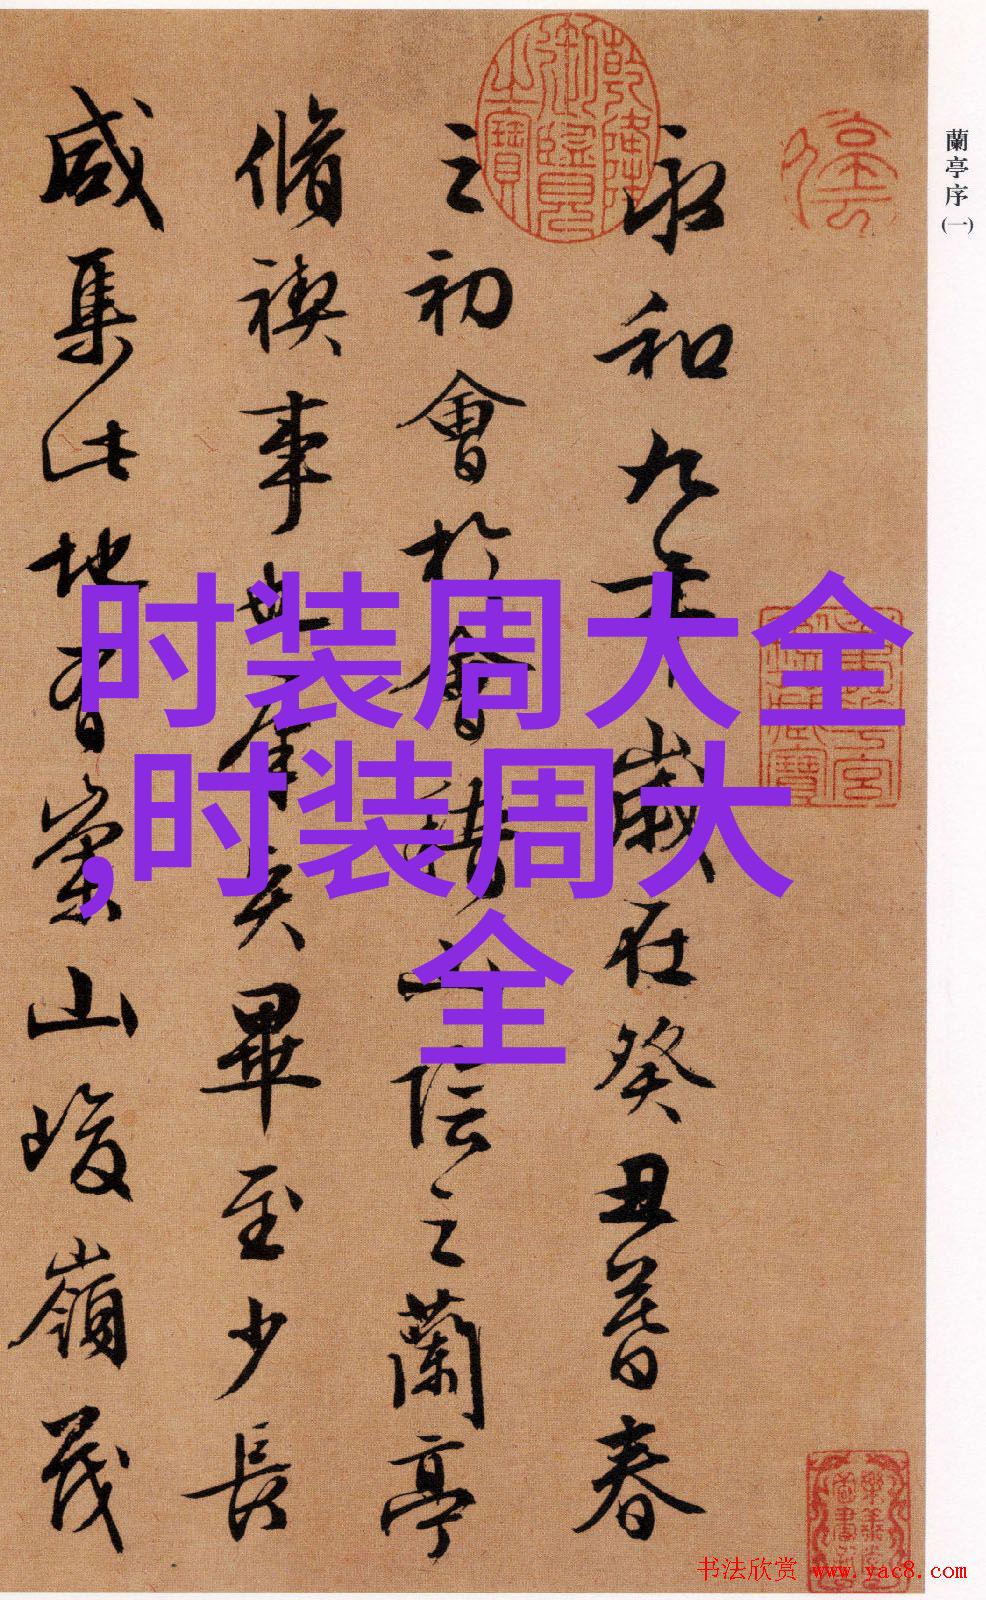 蘭亭序(一)
永和九年歲在癸丑暮春
之初會於會稽山陰之蘭亭
脩禊事也羣賢畢至少長
咸集此地有崇山峻嶺茂
乾隆御覽之寶
时装周大全
,时装周大
全
书法欣赏 www.yac8.com